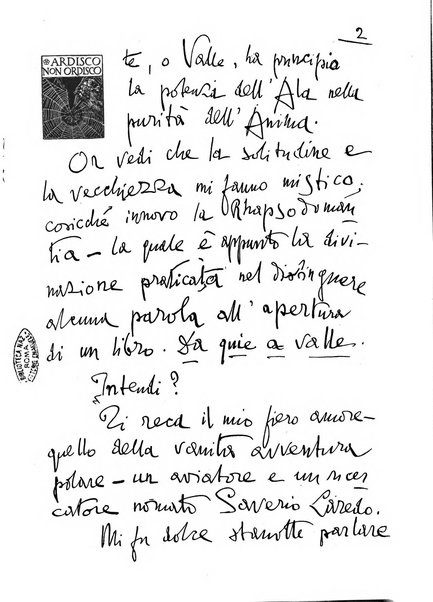 2
ARDISCO
NON ORDISCO
te, o Valle, ha principio
la potenza dell'Ala nella
purità dell'Anima.
Or vedi che la solitudine e
la vecchiezza mi fanno mistico;
cosicché innovo la Rhapsodoman
tia – la quale è appunto la divi-
nazione praticata nel distinguere
alcuna parola all'apertura
di un libro. Da quie a valle.
Intendi?
Ti reca il mio fiero amore –
quello della vanità avventura
polare – un aviatore e un ricer
catore nomato Saverio Laredo.
Mi fu dolce stanotte parlare
BIBLIOTECA NAZ.
ROMA
VITTORIO EMANUELE